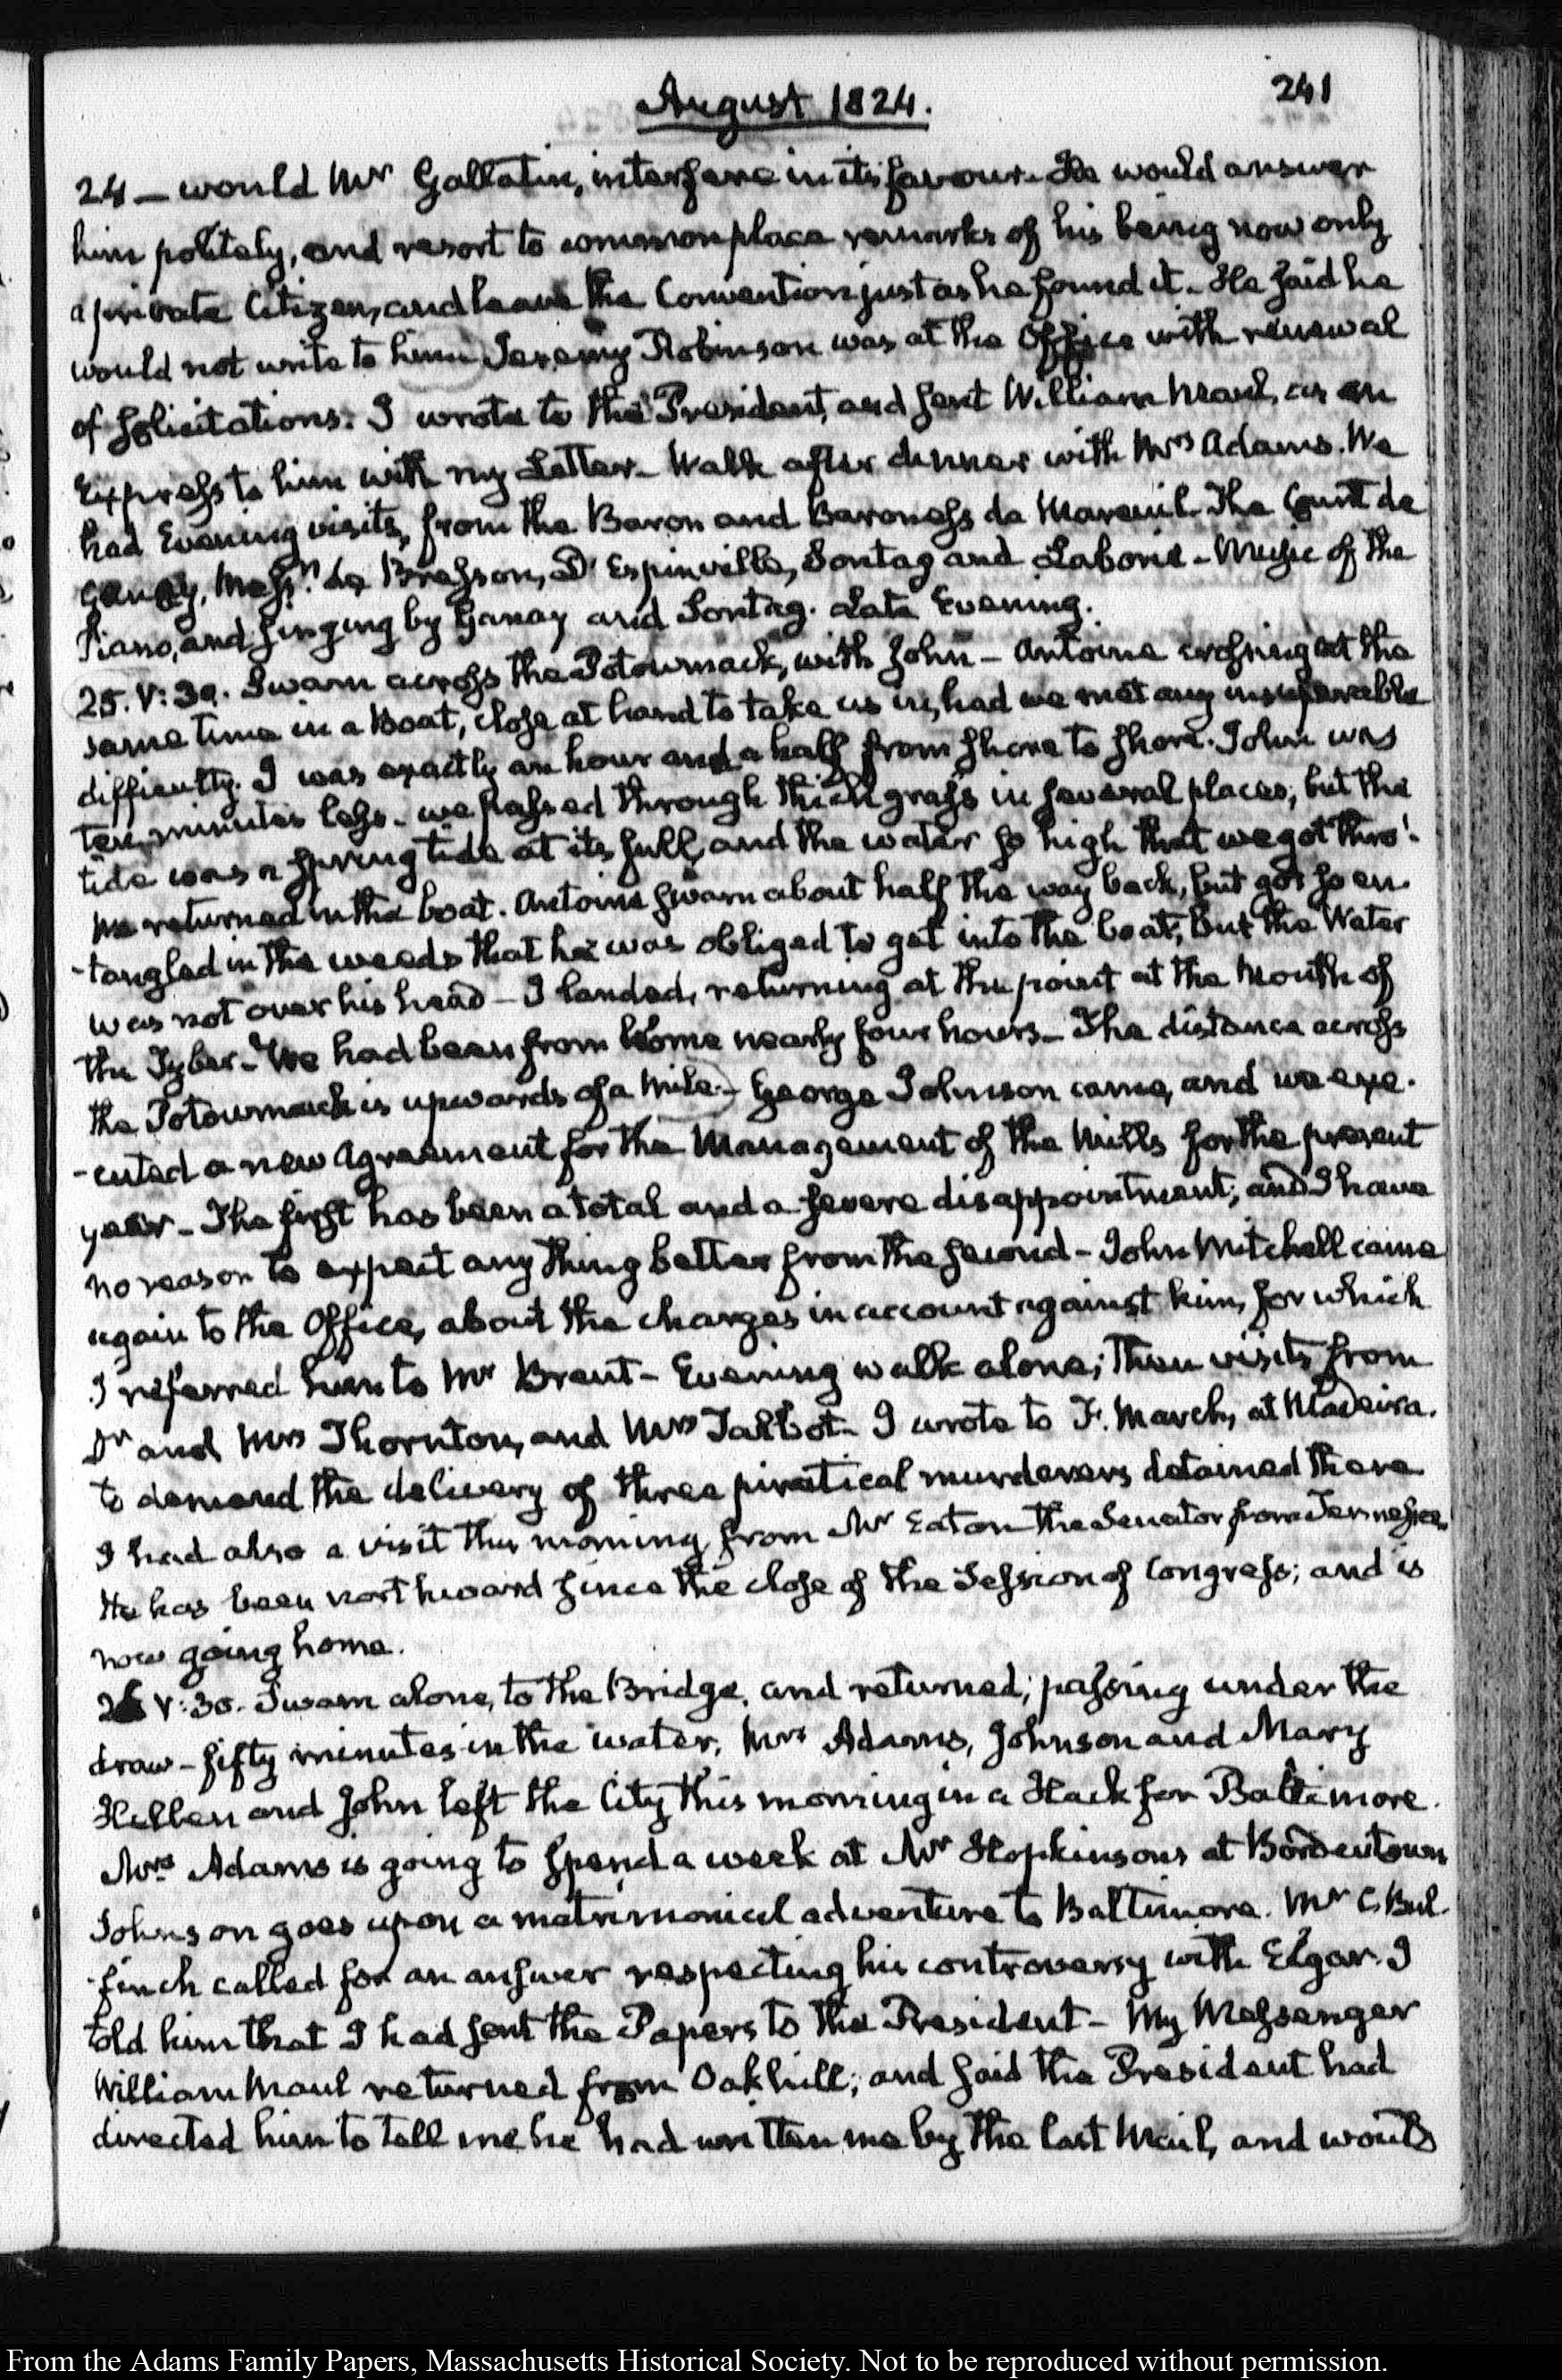 August 1824.
241
24 — would Mr Gallatin, interfere in its favour. He would answer
him politely, and resort to common place remarks of his being now only
a private Citizen, and leave the Convention just as he found it. He said he
would not write to him Jeremy Robinson was at the Office with renewal
of solicitations. I wrote to the President, and sent William Maul, as an
Express to him with my Letter. Walk after dinner with Mrs Adams. We
had Evening visits, from the Baron and Baroness de Mareuil. The Count de
Ganay, Messrs de Bresson, D'Espinville, Sontag and Laborie - Music of the
Piano, and singing by Ganay and Sontag. Late Evening.
25. V:30. Swam across the Potowmack, with John - Antoine crossing at the
same time in a Boat, close at hand to take us in, had we met any insuperable
difficulty. I was exactly an hour and a half from shore to shore. John was
ten minutes less - we passed through thick grass in several places, but the
tide was a spring tide at its full, and the water so high that we got thro'.
We returned in the boat. Antoine swam about half the way back, but got so en-
-tangled in the weeds that he was obliged to get into the boat, but the Water
was not over his head - I landed, returning at the point at the Mouth of
the Tyber - We had been from home nearly four hours - The distance across
the Potowmack is upwards of a Mile - George Johnson came, and we exe-
-cuted a new Agreement for the Management of the Mills for the present
year - The first has been a total and a severe disappointment; and I have
no reason to expect any thing better from the second - John Mitchell came
again to the Office, about the charges in account against him, for which
I referred him to Mr Brent - Evening walk alone; then visits from
Dr and Mrs Thornton, and Mrs Talbot - I wrote to F. March, at Madeira.
to demand the delivery of three piratical murderers detained there
I had also a visit this morning from Mr Eaton the Senator from Tennessee.
He has been northward since the close of the Session of Congress; and is
now going home.
26 V:30. Swam alone, to the Bridge, and returned; passing under the
draw - fifty minutes in the water, Mrs Adams, Johnson and Mary
Hellen and John left the City this morning in a Hack for Baltimore.
Mrs Adams is going to spend a week at Mr Hopkinsons at Bordentown
Johnson goes upon a matrimonial adventure to Baltimore. Mr C. Bul-
-finch called for an answer respecting his controversy with Elgar. I
told him that I had sent the Papers to the President - My Messenger
William Maul returned from Oakhill; and said the President had
directed him to tell me he had written me by the last Mail, and would
From the Adams Family Papers, Massachusetts Historical Society. Not to be reproduced without permission.